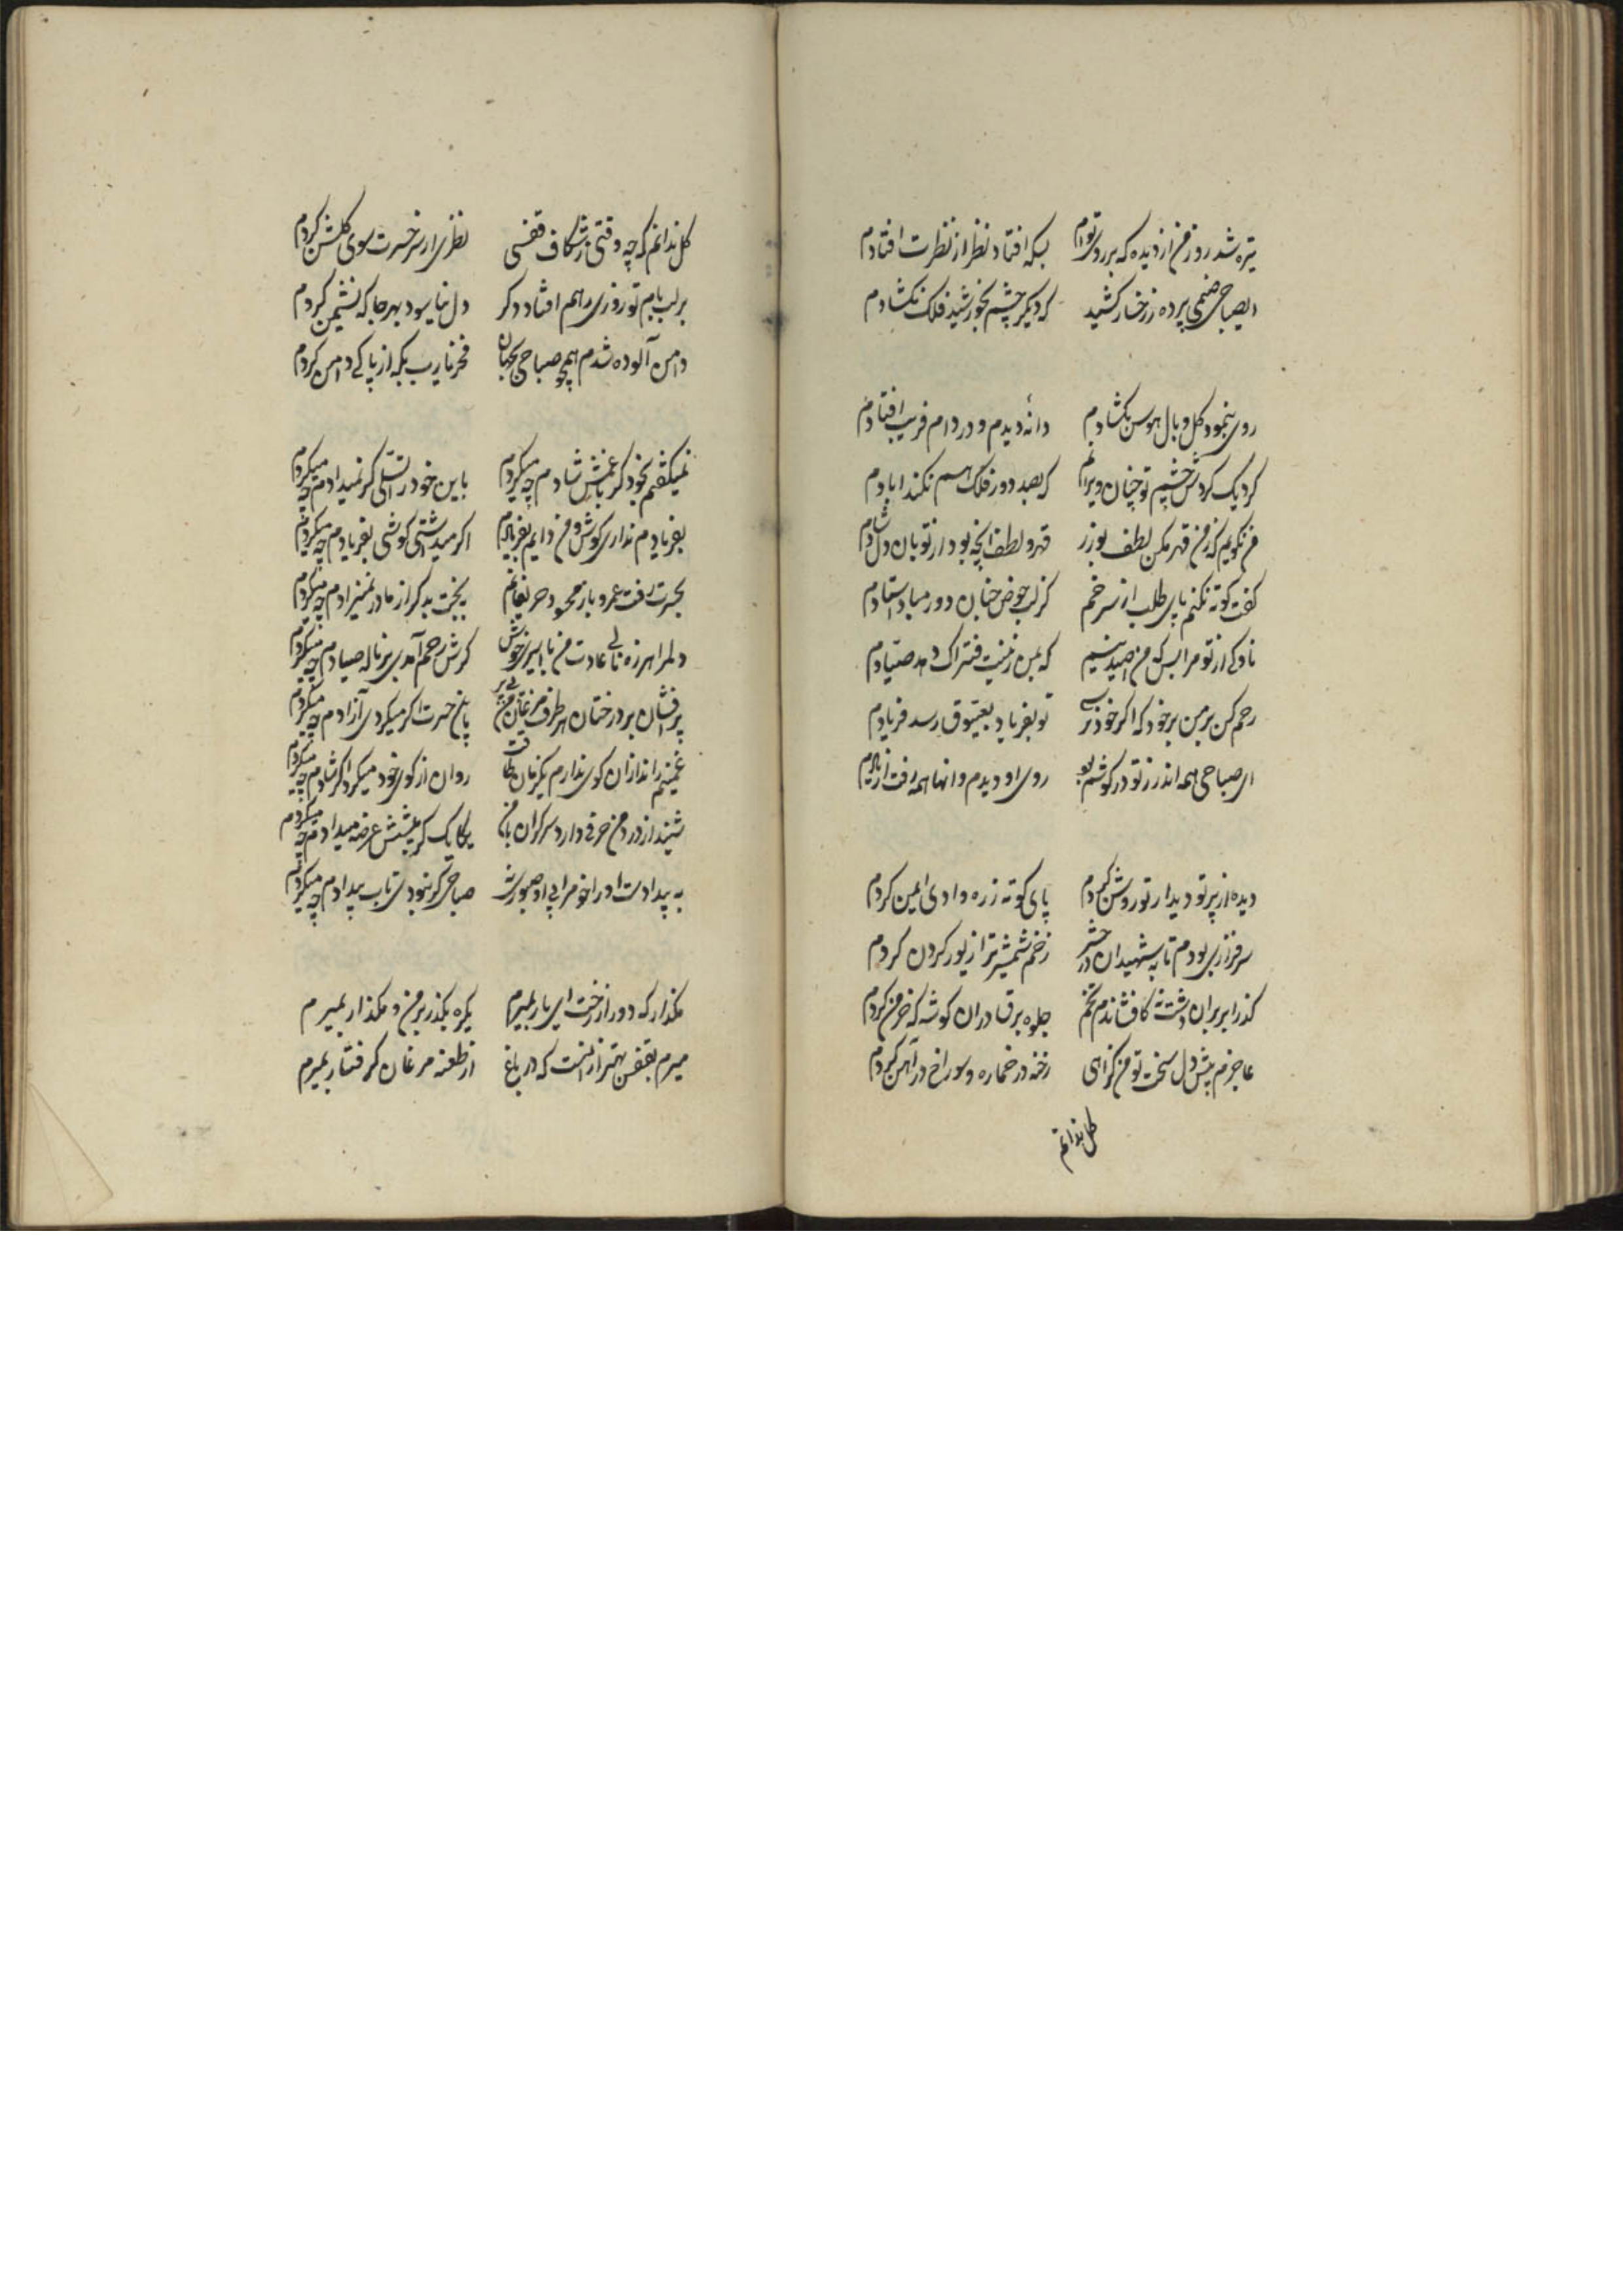 تیره شد روز من از دیده که بر روی تو ام بسکه افتاد نظر از نظرت افتادم
ایصباحی صنمی پرده ز رخسار کشید که دیگر چشم بخورشید فلک نکشادم
روی بنمود گل و بال هوس بکشادم دانهٔ دیدم و در دام فریب افتادم
کرد یک کردش چشم تو چنان ویرانم که بصد دور فلک هم نکند ابادم
من نکویم که ز من قهر مکن لطف بورز قهر و لطف انچه بود از تو بان دل شادم
گفت کوته نکنم پای طلب از سر خم کز لب حوض جنان دور مباد استادم
ناوکی از تو مرا بس که من آن صید نیم که بمن زینت فتراک دهد صیادم
رحم کن بر من بر خود که اگر خود نرسی تو بفریاد بعیوق رسد فریادم
ای صباحی همه اندرز تو در گوشم بود روی او دیدم و انها همه رفت از یادم
دیده از پرتو دیدار تو روشن کردم پای کوته ز ره وادی ایمن کردم
سرفرازی بودم تا به شهیدان در حشر زخم شمشیر ترا زیور گردن کردم
گذر ابر بر ان دشت نه کافشاندم تخم جلوه برق در ان گوشه که خرمن کردم
عاجزم پیش دل سخت تو من کز آهی رخنه در خاره و سوراخ در آهن کردم
گل ندانم
گل ندانم که چه وقتی ز شکاف قفسی نظری از سر حسرت سوی گلشن کردم
بر لب بام تو روزی رهم افتاد و دگر دل نیاسود بهر جا که نشیمن کردم
دامن آلوده شدم همچو صباحی بجهان فخر نا ریب بکه از پاکی دامن کردم
نمیگفتم بخود گر با غمش شادم چه میکردم باین خود را تسلی گر نمیدادم چه میکردم
بفریادم نداری گوش و من دایم بفریادم اگر میداشتی گوشی بفریادم چه میکردم
بحسرت رفت عمر و باز محسود حریفانم ببخت بد گر از مادر نمیزادم چه میکردم
دلم را هرزه نالی عادت من نا اسیری خوش گرش رحم آمدی بر ناله صیادم چه میکردم
پر افشان بر درختان هر طرف مرغان من بی پر باین حسرت اگر میکردی آزادم چه میکردم
غمینم راند از ان کوی ندارم یکزمان طاقت روان از کوی خود میکرد اگر شادم چه میکردم
شنید از درد من حرفی و دارد سر گران با من یکایک گر به پیشش عرضه میدادم چه میکردم
به بیدادست او را خو مرا بی او صبوری صباحی گر نبودی تاب بیدادم چه میکردم
مگذار که دور از رخت ای یار بمیرم یکره بگذر بر من و مگذار بمیرم
میرم بقفس بهتر از انست که در باغ از طعنه مرغان گرفتار بمیرم